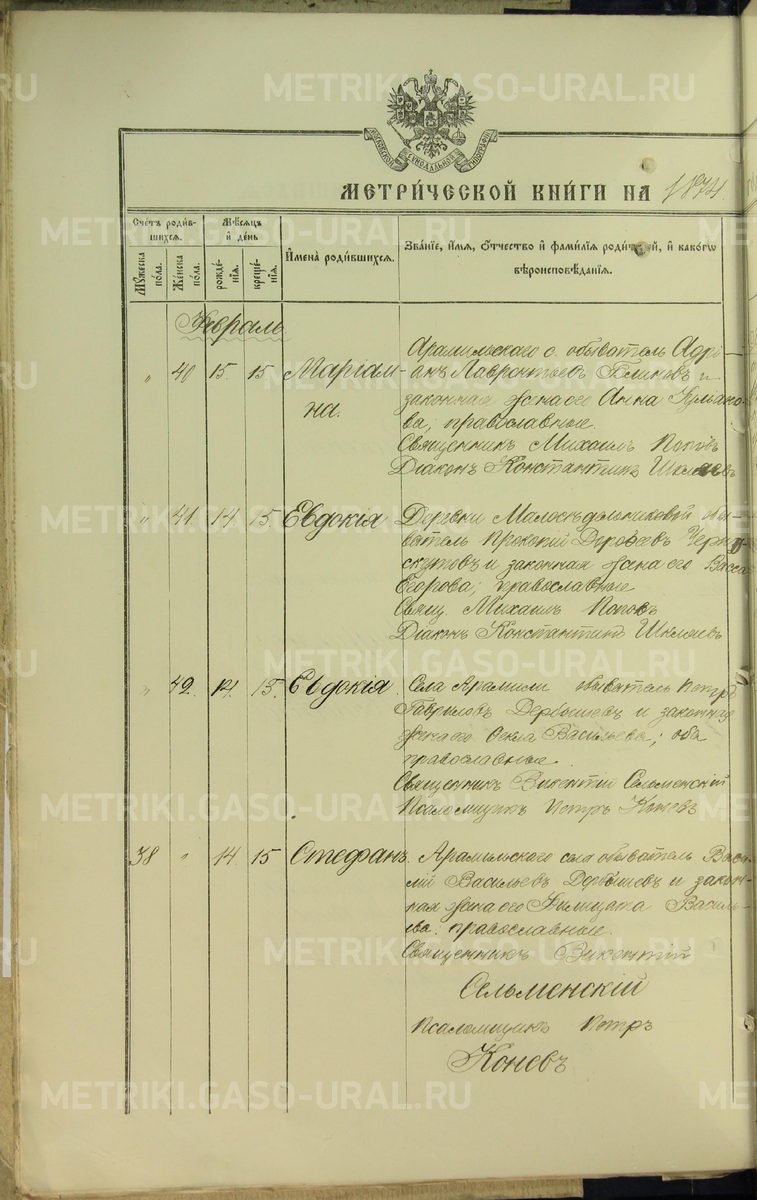 METRIKI.GASO-URAL.RU
МОСКОВСКОЙ СѴНОДАЛЬНОЙ ТИПОГРАФІИ
МЕТРИ́ЧЕСКОЙ КНИ́ГИ НА 1874.
Сче́тъ роди́вшихся.
Мꙋ́жеска по́ла.
Же́нска по́ла.
Мѣ́сяцъ и҆ де́нь
рожде́нїя.
креще́нїя.
И҆мена̀ роди́вшихся.
Зва́нїе, и҆́мя, ѻ҆́тчество и҆ фами́лїя роди́телей, и҆ како́гѡ
вѣроисповѣ́данїя.
Февраль
„ 40 15. 15 Маріам-
на.
Арамильскаго с. обыватель Адрі-
анъ Лаврентьевъ и
законная жена его Анна
ва, православные.
Священникъ Михаилъ Поповъ
Діаконъ Константинъ Шкляевъ
„ 41. 14. 15. Евдокія
Деревни Малосѣдельниковой обы-
ватель Прокопій Дорофеевъ Черно-
скутовъ и законная жена его Васса
Егорова, православные
Свящ. Михаилъ Поповъ
Діаконъ Константинъ Шкляевъ
„ 42. 14. 15. Евдокія.
Села Арамили обыватель Петръ
Гавриловъ Дербышевъ и законная
жена его Васильева; оба
православные.
Священникъ Викентій Сельменскій
Псаломщикъ Петръ Коневъ
38 „ 14. 15 Стефанъ.
Арамильскаго села обыватель Васи-
лій Васильевъ Дербышевъ и закон-
ная жена его Филицата Василь-
ева. православные.
Священникъ Викентій
Сельменскій
Псаломщикъ Петръ
Коневъ